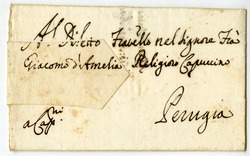 Al Dileto Fratello nel Signore Frà
Giacomo d'Amelia Religioso Capuccino
a Cap.ni
Perugia